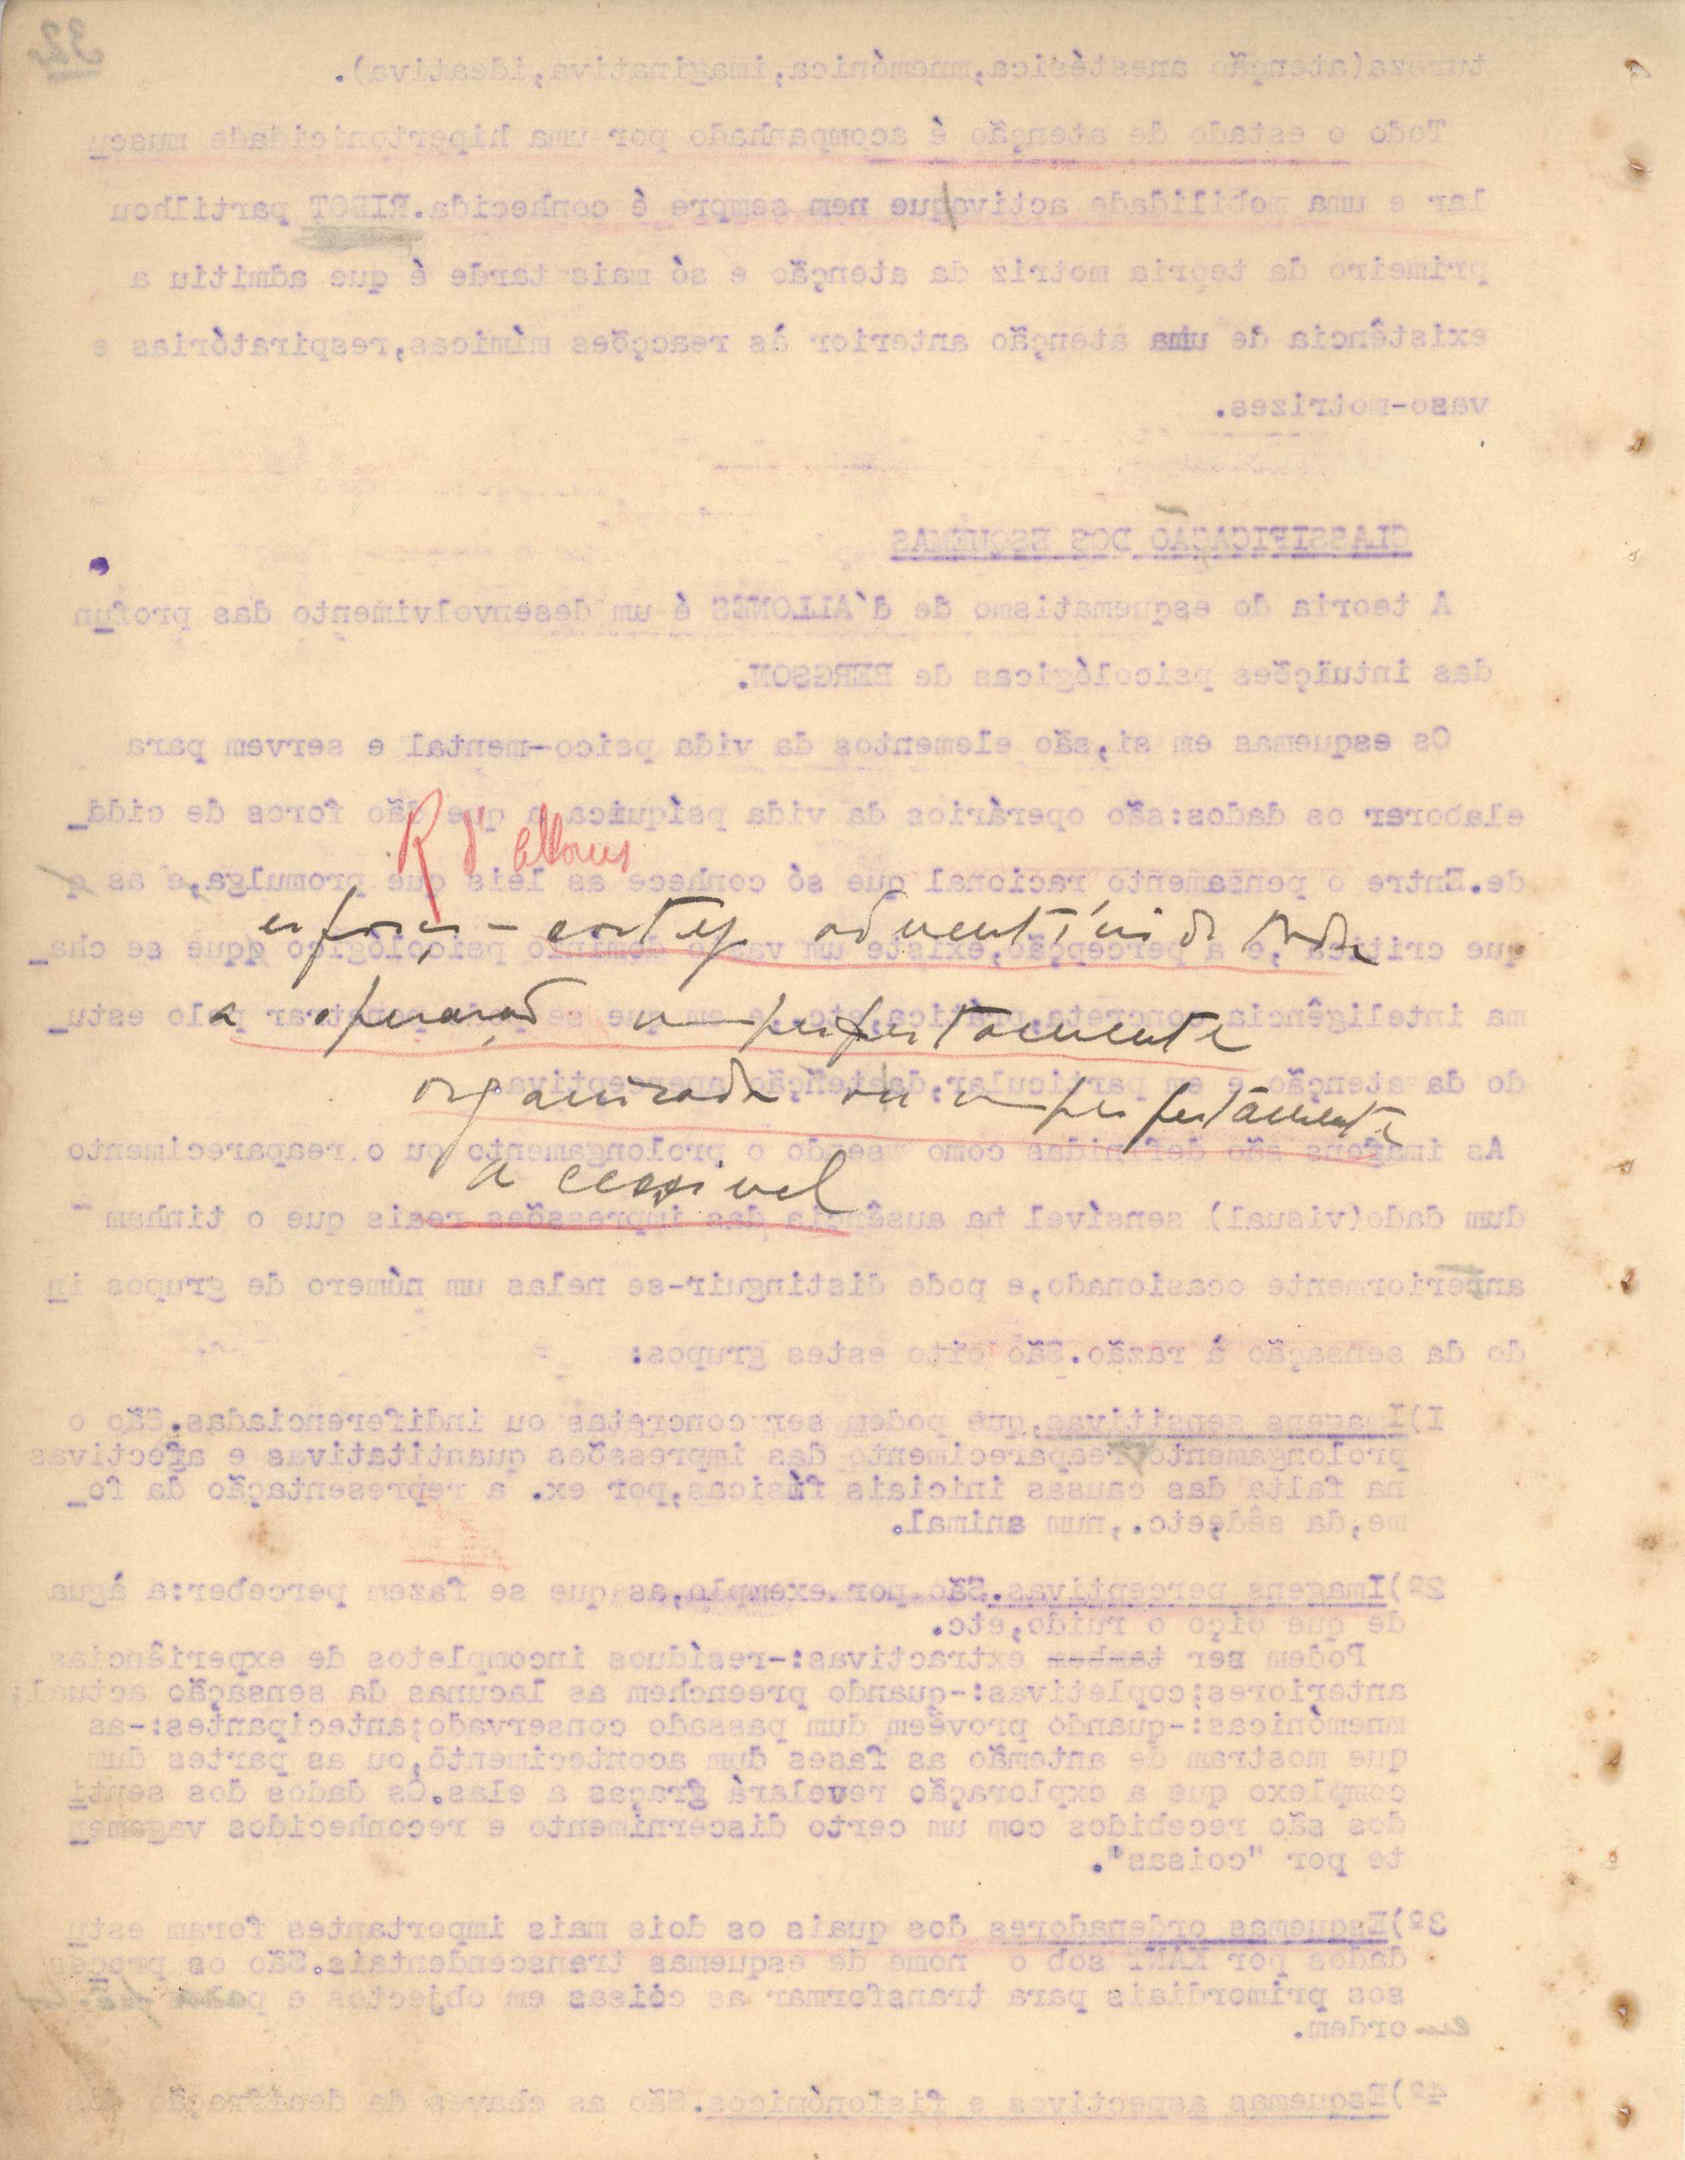 32
tureza(atenção anestésica,mnemónica,imaginativa,ideativa).
Todo o estado de atenção é acompanhado por uma hipertonicidade muscu
lar e uma mobilidade activa que nem sempre é conhecida.RIBOT partilhou
primeiro da teoria motriz da atenção e só mais tarde é que admitiu a
existência de uma atenção anterior às reacções mímicas,respiratórias e
vaso-motrizes.
CLASSIFICAÇÃO DOS ESQUEMAS
A teoria do esquematismo de d'ALLONES é um desenvolvimento das profun
das intuïções psicológicas de BERGSON.
Os esquemas em si,são elementos da vida psico-mental e servem para
elaborar os dados:são operários da vida psíquica a que dão foros de cida_
R d'Allones
de.Entre o pensamento racional que só conhece as leis que promulga,e as q
esforço - adventício de toda
que critica,e a percepção,existe um vasto domínio psicológico que se cha_
a operação imperfeitamente
ma inteligência concreta,prática,etc.,e em que se pode penetrar pelo estu_
organizada ou imperfeitamente
do da atenção e em particular,da atenção aperceptiva.
As imagens são definidas como sendo o prolongamento ou o reaparecimento
acessível
dum dado(visual) sensível na ausência das impressões reais que o tinham
anteriormente ocasionado,e pode distinguir-se nelas um número de grupos in
do da sensação à razão.São oito estes grupos:
1)Imagens sensitivas,que podem ser concretas ou indiferenciadas.São o
prolongamento reaparecimento das impressões quantitativas e afectivas
na falta das causas iniciais físicas,por ex. a representação da fo_
me,da sêde,etc.,num animal.
2º)Imagens perceptivas.São por exemplo,as que se fazem perceber:a água
de que oiço o ruido,etc.
Podem ser tambem extractivas:-resíduos incompletos de experiências
anteriores;copletivas:-quando preenchem as lacunas da sensação actual;
mnemónicas:-quando provêem dum passado conservado;antecipantes:-as
que mostram de antemão as fases dum acontecimento,ou as partes dum
complexo que a exploração revelará graças a elas.Os dados dos senti
dos são recebidos com um certo discernimento e reconhecidos vagamen
te por "coisas".
3º)Esquemas ordenadores dos quais os dois mais importantes foram estu
dados por KANT sob o nome de esquemas transcendentais.São os proces
sos primordiais para transformar as cóisas em objectos e
em ordem.
4º)Esquemas aspectivos e fisionómicos.São as chaves da